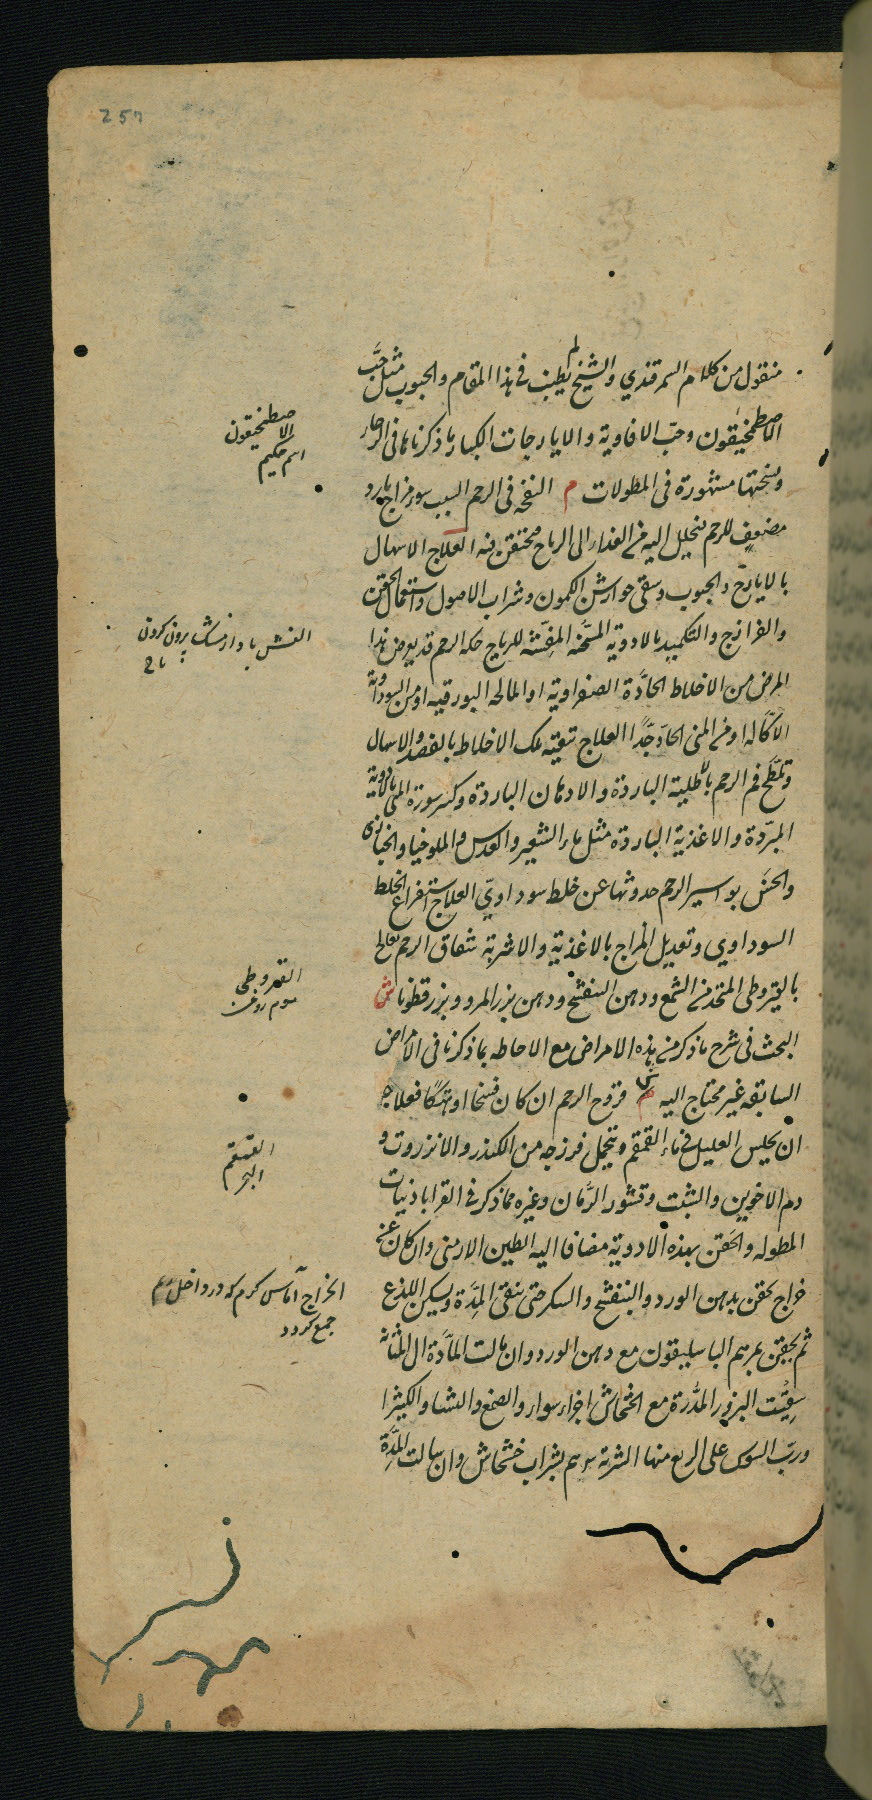 257
منقول من كلام السمرقندي والشيخ لم يطنب في هذا المقام والحبوب مثل حبّ
الاصطمخيقون وحبّ الافاوية والايارجات الكبار ما ذكرناها في
ونسختها مشهورة في المطولات م النفخة في الرحم السبب سوء مزاج بارد
مضعف للرحم فيحيل اليه من الغذاء الى الرياح محتقن فيه العلاج الاسهال
بالايارج والحبوب وسقى جوارشن الكمون وشراب الاصول واستعمال الحقن
والفرازج والتكميد بالادوية المسخنة المفشّة للرياح حكة الرحم قد يعرض هذا
المرض من الاخلاط الحادّة الصفراوية او المالحه البورقيه او من السوداوية
الاكّاله او من المنى الحاد جدًا العلاج تنقيته تلك الاخلاط بالفصد والاسهال
وتلطخ فم الرحم بالاطلية الباردة والادهان الباردة وكسر سورة المنى بالادوية
المبرّدة والاغذية الباردة مثل ماء الشعير والعدس والملوخيا والخبازى
والخسّ بواسير الرحم حدوثها عن خلط سوداويّ العلاج استفراغ الخلط
السوداوي وتعديل المزاج بالاغذية والاشربة شقاق الرحم تعالج
بالقيروطى المتخذ من الشمع ودهن البنفسج ودهن بزر المرو وبزر قطونا ش
البحث في شرح ما ذكر من هذه الامراض مع الاحاطه بما ذكرنا في الامراض
السابقه غير محتاج اليه م قروح الرحم ان كان فسخا او هتكًا فعلاجه
ان يجلس العليل في ماء القمقم ويتحمل فرزجه من الكندر والانزروت و
دم الاخوين والشبت وقشور الرّمان وغيره مما ذكر في القراباذينات
المطوله والحقن بهذه الادوية مضافا اليه الطين الارمنى وان كان عن
خراج يحقن بدهن الورد والبنفسج والسكر حتى ينقى المدّة ويسكن اللذع
ثم يحقن بمرهم الباسليقون مع دهن الورد وان مالت المادّة الى المثانة
سقيت البزور المدرّة مع الخشخاش اجزاء سواء والصمغ والنشا والكثيرا
وربّ السوس على الربع منها الشربة بشراب خشخاش وان سالت المدّة
الاصطمخيقون
اسم حكيم
الفش باد از مشك برون كردن
القيروطى
موم روغن
القمقم
الخراج آماس كرم كه در داخل
جمع كردد